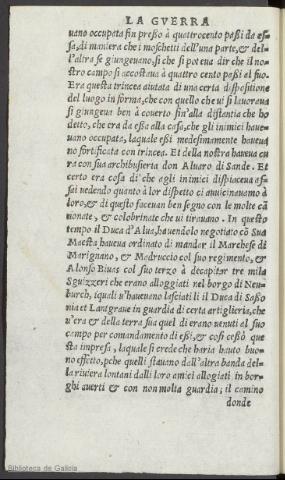 LA GVERRA
uano occupata fin presso à quattrocento passi da es-
sa, di maniera che i moschetti dell'una parte, & del-
l'altra se giungeuano, si che si poteua dir che il no-
stro campo si accostaua à quattro cento passi al suo.
Era questa trincea aiutata di una certa dispositione
del luogo in forma, che con quello che ui si lauoraua
si giungeua ben à couerto fin'alla distantia che ho
detto, che era da essa alla casa, che gli inimici haue-
uano occupata, laquale essi medesimamente haueua
no fortificata con trincea. Et della nostra haueua cu
ra con sua archibusieria don Aluaro di Sande. Et
certo era cosa di che agli inimici dispiaceua as-
sai uedendo quanto à lor dispetto ci auuicinauamo à
loro, & di questo faceuan ben segno con le molte cã
nonate, & colobrinate che ui tirauano. In questo
tempo il Duca d'Alua, hauendolo negotiato cõ Sua
Maestà haueua ordinato di mandar il Marchese di
Marignano, & Madruccio col suo regimento, &
Alonso Biuas col suo terzo à decapitar tre mila
Sguizzeri che erano alloggiati nel borgo di Neu-
burch, iquali u'haueuano lasciati li il Duca di Sasso
nia et Lantgraue in guardia di certa artiglieria, che
u'era & della terra sua quel di erano uenuti al suo
campo per comandamento di essi, & così cessò que
sta impresa, laquale si crede che haria hauto buo-
no effetto, pche quelli stauano dall'altra banda del-
la riuiera lontani dalli loro amici allogiati in bor-
ghi auerti & con non molta guardia; il camino
donde
Biblioteca de Galicia